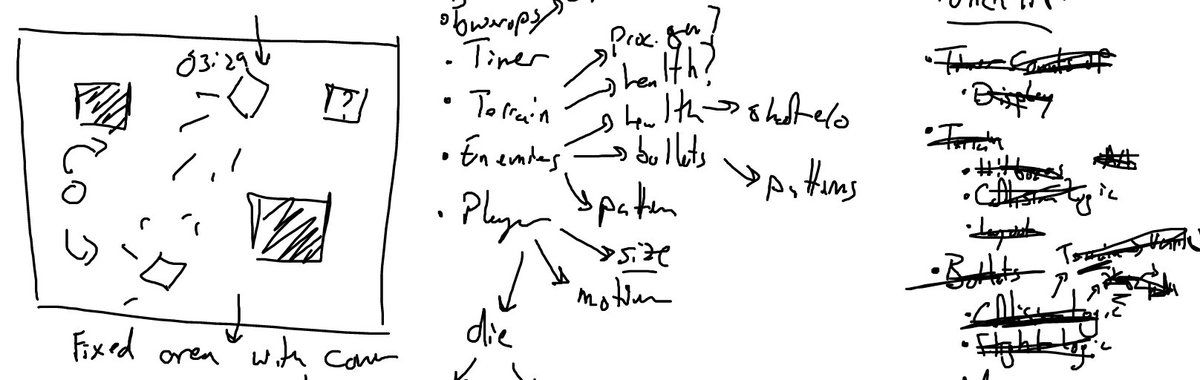 03:29
?
Fixed area with
Powerups
• Timer
• Terrain
• Enemies
• Player
Proc. gen?
health?
health
bullets
pattern
patterns
size
motion
die
• Timer Counts up
• Display
• Terrain
• Hitboxes
• Collision Logic
• Layout
• Bullets
• Collision Logic
• Flight Logic